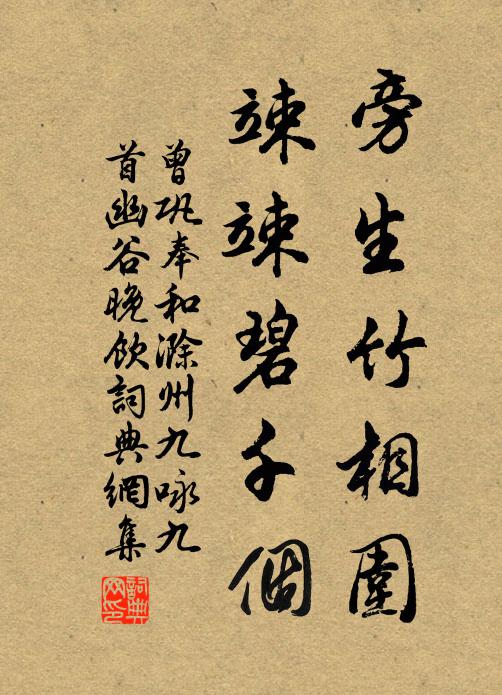 旁生竹相圍
竦竦碧千個
曾巩奉和滁州九咏九
首幽谷晚飲詞典網集
詞典
网印